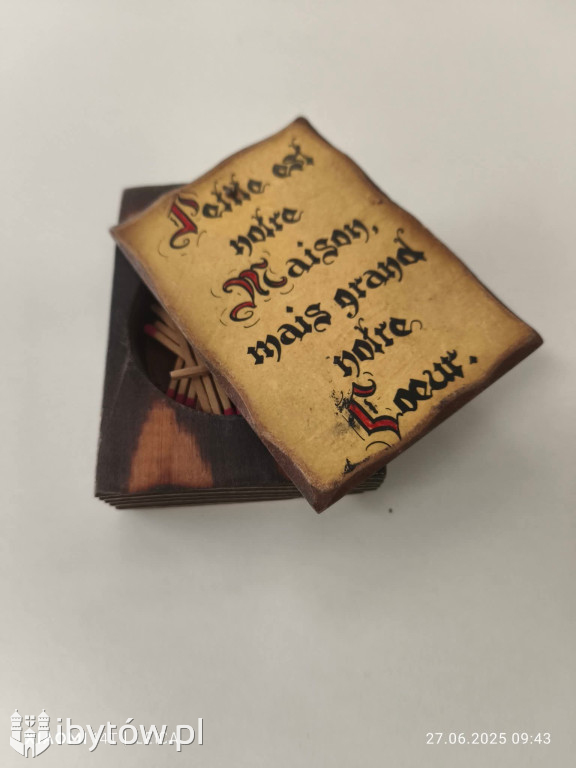 Petite est
notre
Maison,
mais grand
notre
Coeur.
ibytów.pl
27.06.2025 09:43